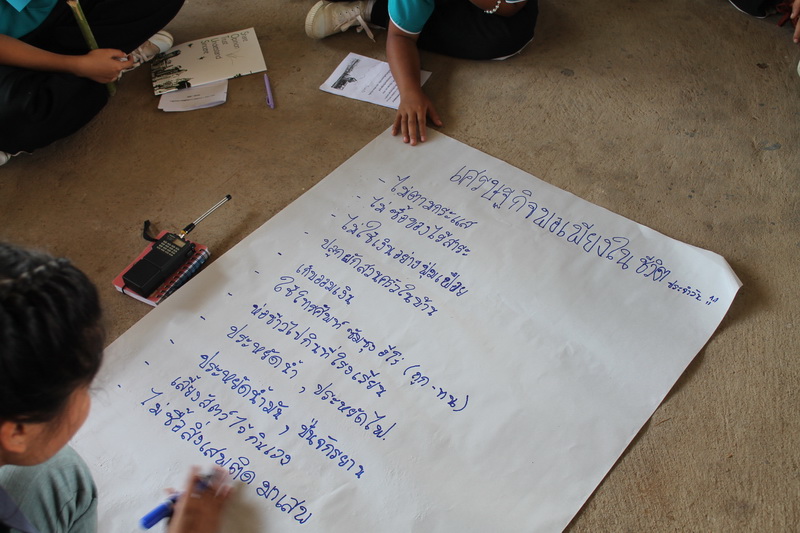 เศรษฐกิจพอเพียงใน ชีวิต ประจำวัน
- ไม่ตามกระแส
- ไม่ ซื้อของไร้สาระ
- ไม่ใช้เงินอย่างฟุ่มเฟือย
- ปลูกผักสวนครัวในบ้าน
- เก็บออมเงิน
- ใช้โทรศัพท์ ซัมซุง ฮีโร่ (ถูก - ทน)
- ห่อข้าวไปกินที่โรงเรียน
- ประหยัดน้ำ , ประหยัดไฟ.
- ประหยัดน้ำมัน , ปั่นจักรยาน
- เลี้ยงสัตว์ไว้กินเอง
- ไม่ ซื้อสิ่งเสพติด มาเสพ